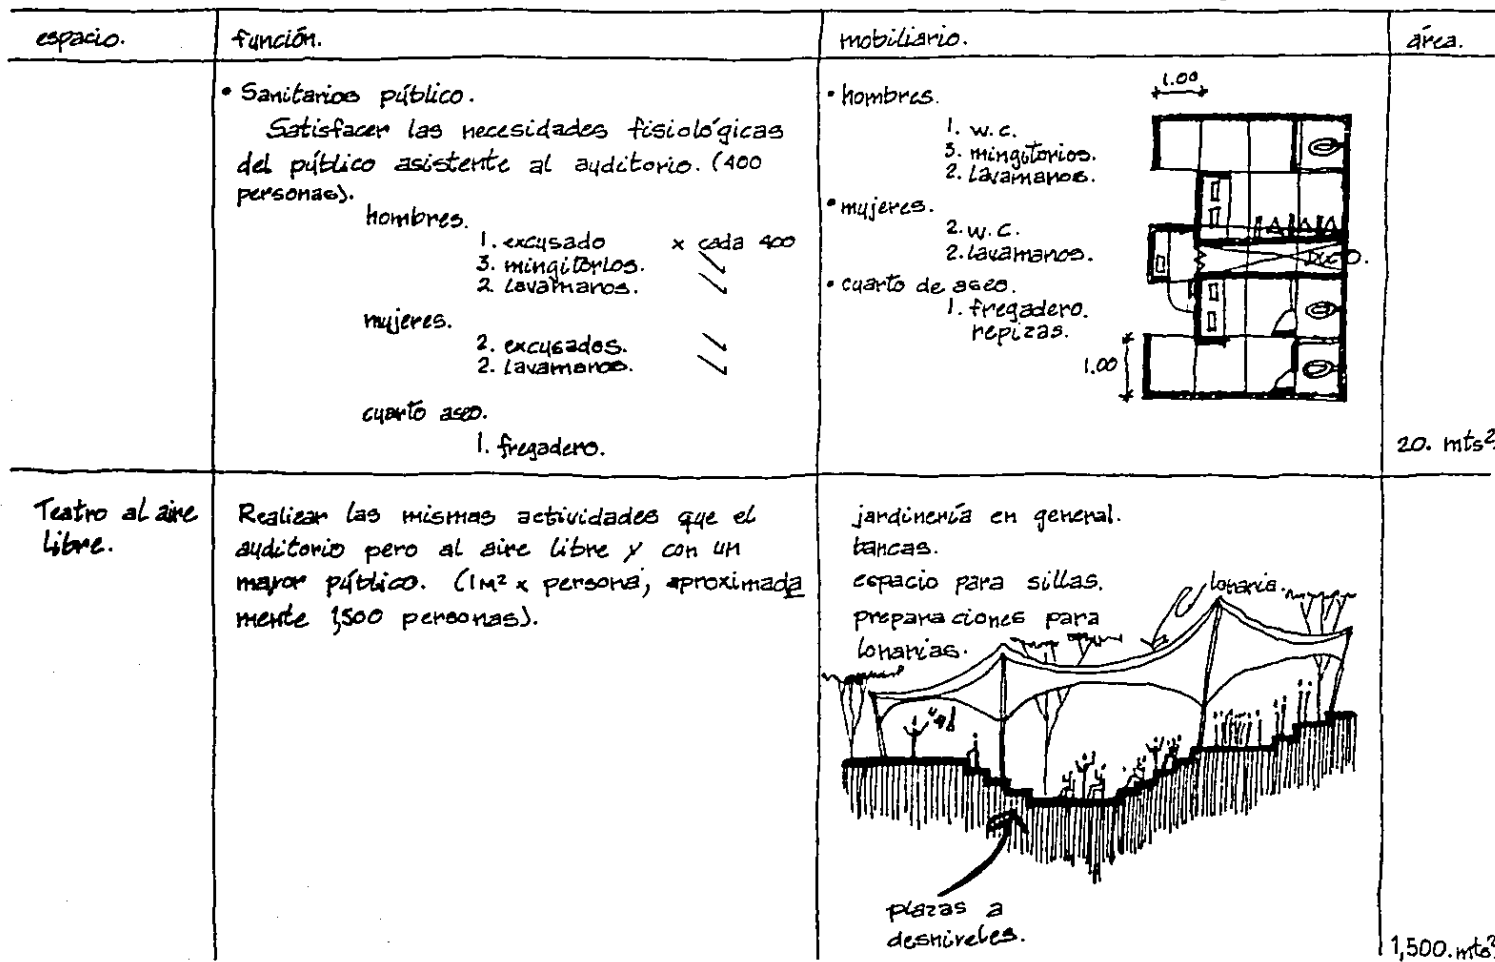 espacio. función. mobiliario. área.
• Sanitarios público.
Satisfacer las necesidades fisiológicas
del público asistente al auditorio. (400
personas).
hombres.
1. excusado x cada 400
3. mingitorios.
2 lavamanos.
mujeres.
2. excusados.
2. lavamanos.
cuarto aseo.
1. fregadero.
• hombres.
1. w.c.
3. mingitorios.
2. lavamanos.
• mujeres.
2. w.c.
2. lavamanos.
• cuarto de aseo.
1. fregadero.
repizas.
1.00
DUCTO.
1.00
20. mts²
Teatro al aire
libre.
Realizar las mismas actividades que el
auditorio pero al aire libre y con un
mayor público. (1M² x persona, aproximada
mente 1,500 personas).
jardinería en general.
bancas.
espacio para sillas.
preparaciones para
lonarias.
lonaria.
plazas a
desniveles.
1,500. mts²